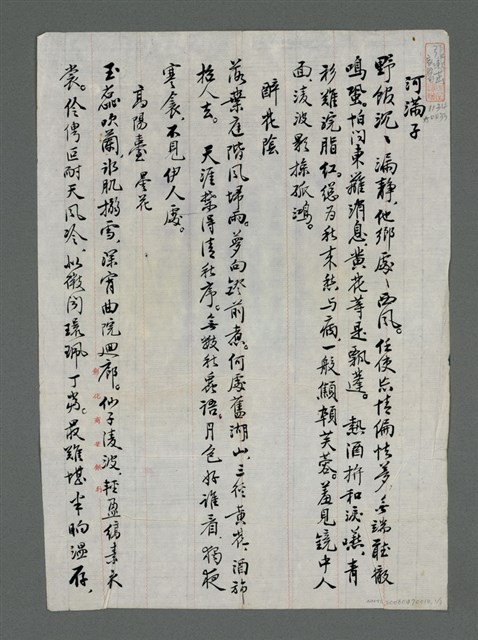 河滿子
野館沉〻漏靜，他鄉處〻西風。任使忘情偏怯夢，無端聽徹
鳴蛩。怕问東籬消息，黄花等是飄蓬。　熱酒拚和淚嚥，青
衫難浣脂紅。總为秋来愁与病，一般顦顇芙蓉。羞見鏡中人
面，凌波影掠孤鴻。
醉花陰
落葉庭階風掃雨。夢向鐙前煮。何處舊湖山，三徑黄花，酒旆
招人去。　天涯荣得清秋序。無数秋蟲語。月色好谁看，獨夜
寒衾，不見伊人處。
高陽臺　曇花
玉蕊吹蘭，冰肌撥雪，深宵曲院迴廊。仙子凌波，輕盈縞素衣
裳。伶俜叵耐天风冷，似微闻環珮丁當。最難堪半晌温存，